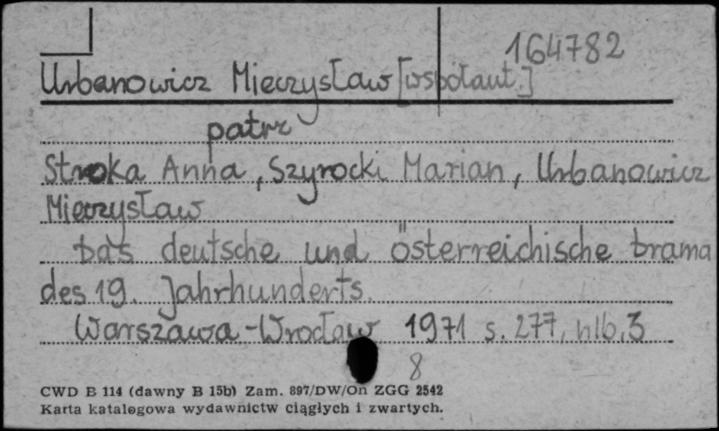 164782
Urbanowicz Mieczysław [współaut.]
patrz
Stroka Anna, Szyrocki Marian, Urbanowicz
Mieczysław
Das deutsche und österreichische Drama
des 19. Jahrhunderts.
Warszawa-Wrocław 1971 s. 277, nlb. 3
8
CWD B 114 (dawny B 15b) Zam. 897/DW/On ZGG 2542
Karta katalogowa wydawnictw ciągłych i zwartych.